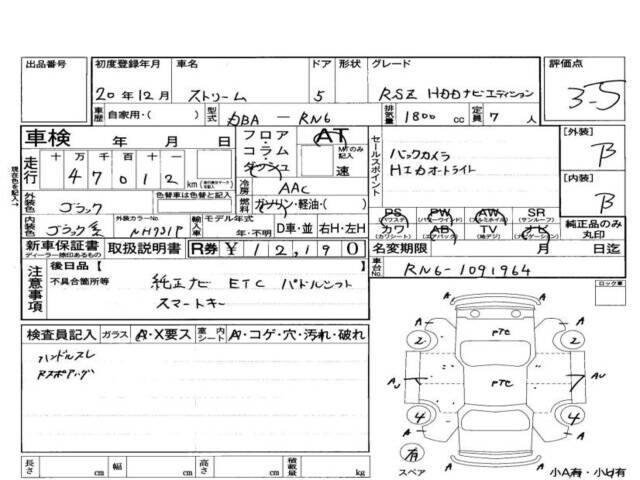 出品番号 初度登録年月 車名 ドア 形状 グレード 評価点
20年12月 ストリーム 5 RSZ HDDナビエディション 3-5
車歴 自家用・( ) 型式 DBA - RN6 排気量 1800 cc 定員 7 人
車検 年 月 日 フロア・コラム・ダッシュ AT MTのみ記入 速 セールスポイント 〔外装〕
バックカメラ B
HIDオートライト
走行 十 万 千 百 十 一
4 7 0 1 2 km
冷房 AAC 〔内装〕
外装色 ブラック 色替車は色替前の色 燃料 ガソリン・軽油・( ) B
内装色 ブラック系 外装カラーNo. NH731P 輸入車 モデル年式 年・不明 D車・並 右H・左H
PS (パワステ) PW (パワーウィンド) AW (アルミホイル) SR (サンルーフ)
カワ (カワシート) AB (エアバック) TV (地デジ) ナビ (ナビゲーション) 純正品のみ丸印
新車保証書 ディーラー捺印あるもの 取扱説明書 R券 ¥ 12,190 名変期限 月 日迄
車台No. RN6-1091964
注意事項 後日品【
不具合箇所等 純正ナビ ETC パドルシフト
スマートキー
ロック車
検査員記入 ガラス A・X要ス 室内シート A・コゲ・穴・汚れ・破れ
ハンドルスレ
A A
2 PTC 2
AU PTC AU
4 4
A A
有
スペア
A A
小A有・小U有
長さ cm 幅 cm 高さ cm 積載量 kg
現在色を記入→